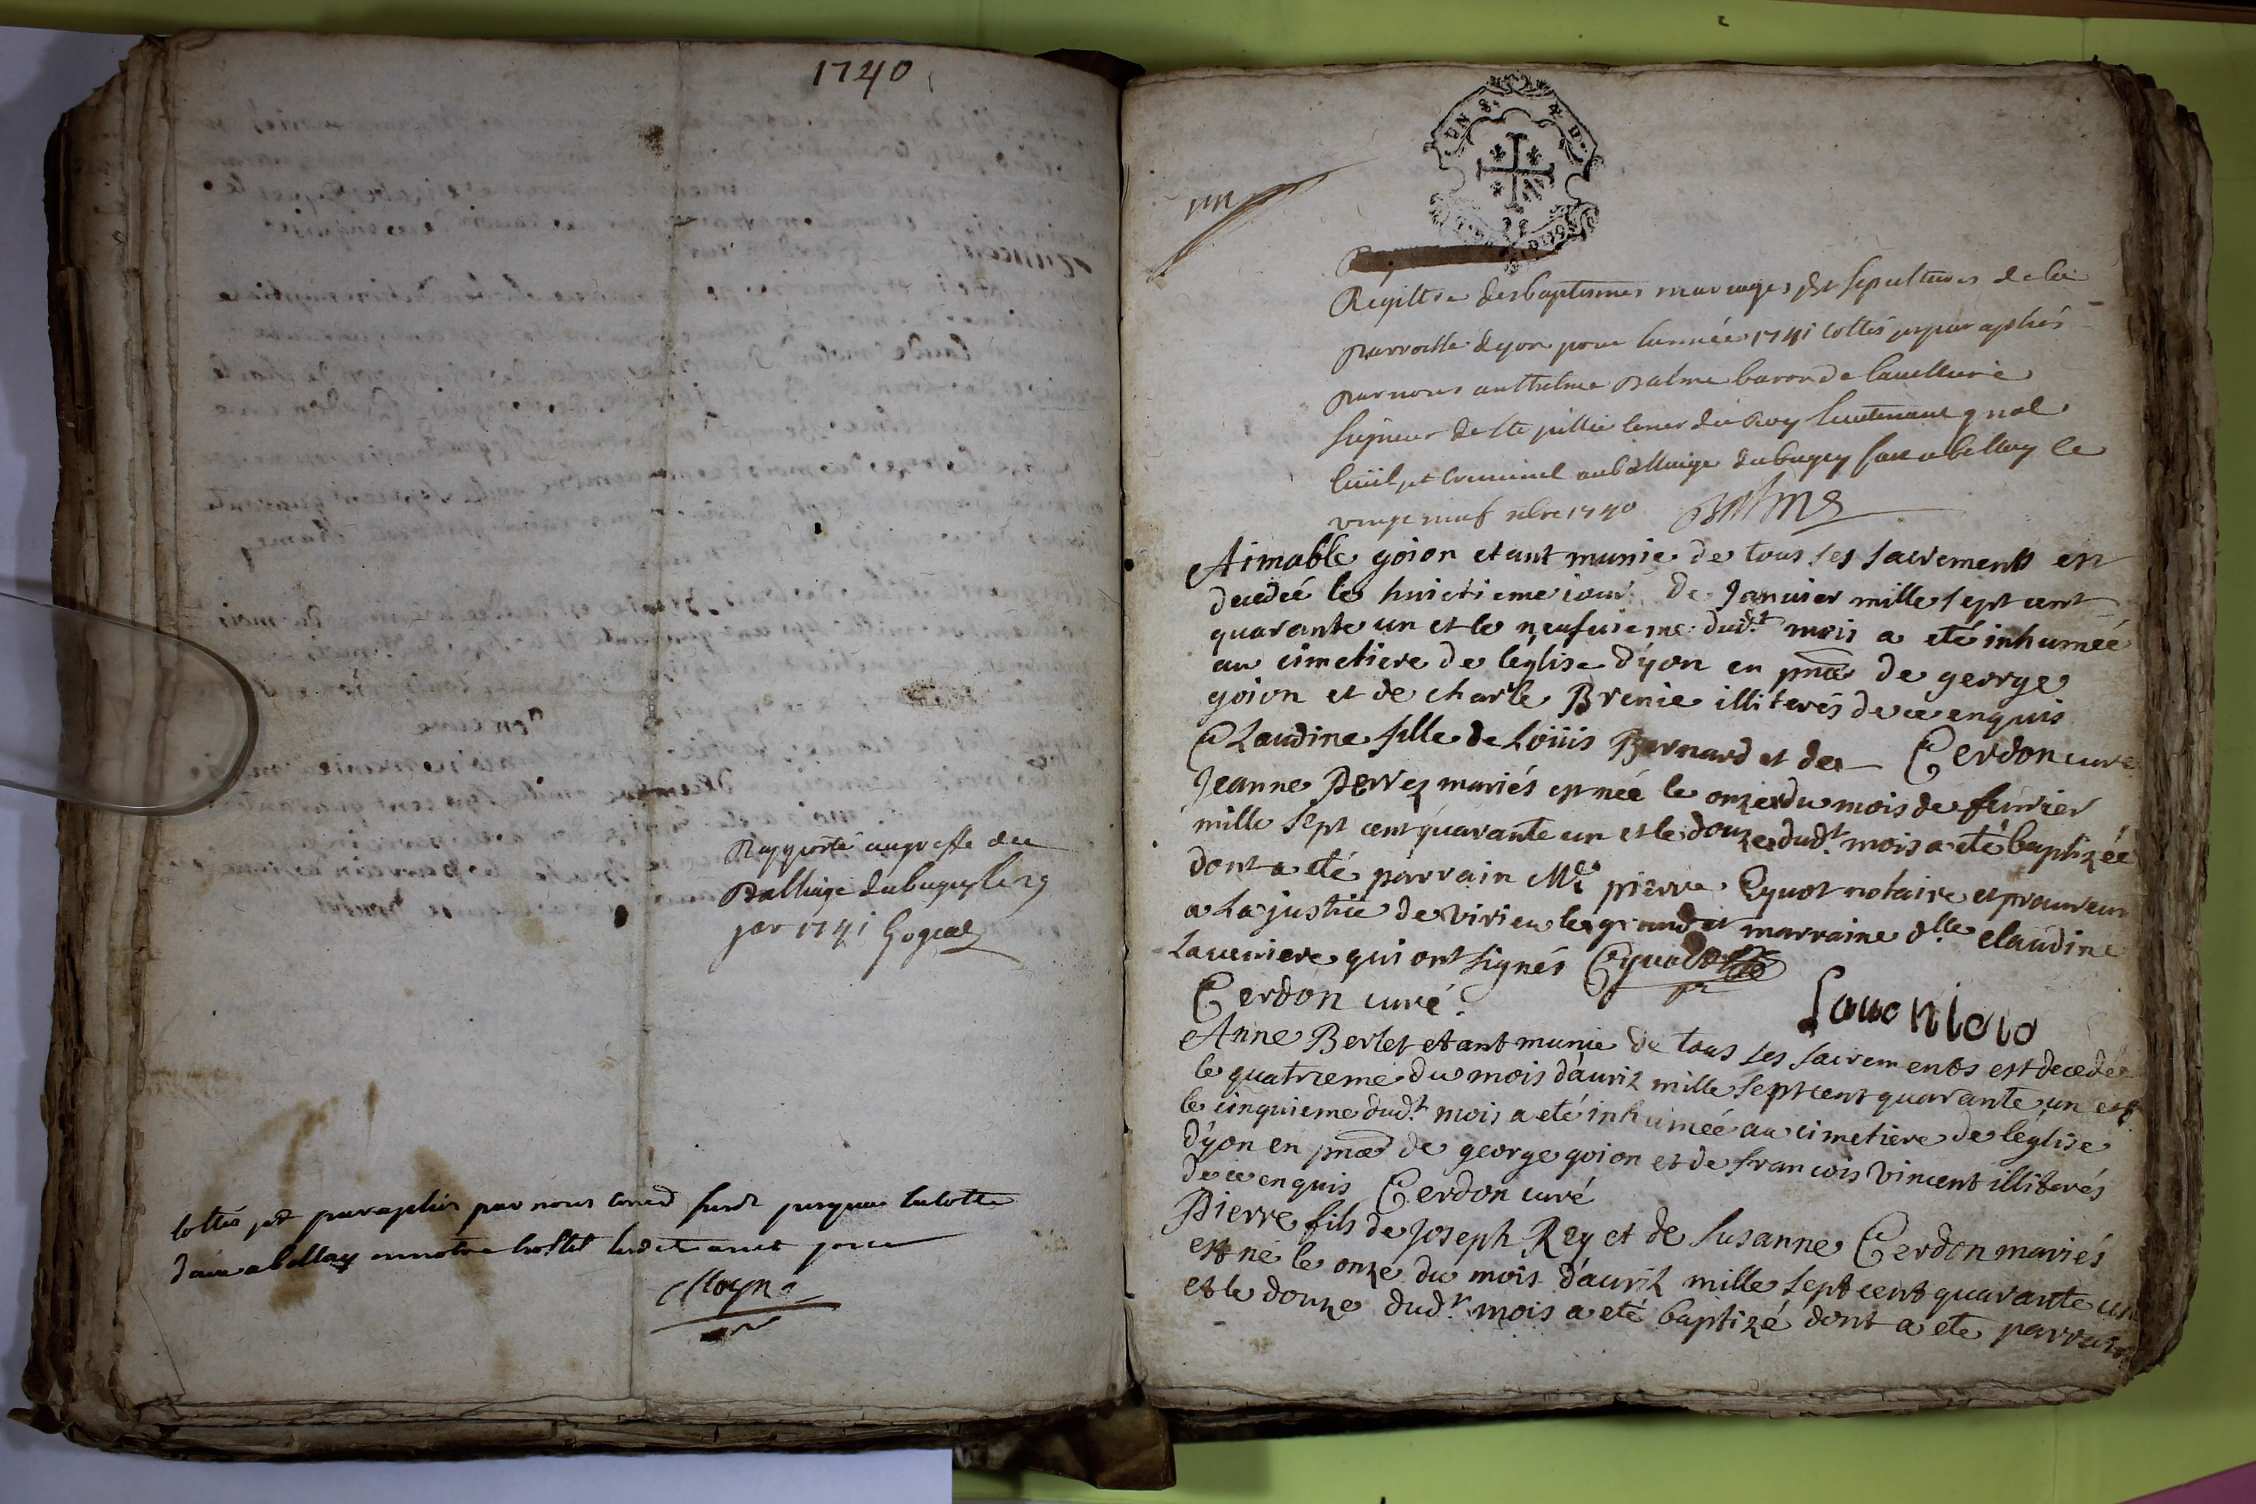 1740
Rapporté au greffe du
Balliage du bugey le 29
jer 1741
cottés et paraphés par nous
a bellay en notre hostel
un
Registre des baptesmes mariages et sepultures de la
parroisse dyon pour lannée 1741 cottés et paraphés
par nous anthelme Balme baron de
seigneur de Ste jullie Coner du Roy lieutenant gnal
Ciuil et Criminel au balliage du bugey sean a bellay le
vingt neuf 1740 Balme
Aimable goion etant munie de tous ses sacrements est
decedeé le huictieme iour de Januier mille sept cent
quarante un et le neufuieme dud.t mois a eté inhumeé
au cimetiere de léglise dÿon en pnce de george
goion et de charle Brenie illiterés de ce enquis
Claudine fille de Loüis Bernard et de Cerdon curé
Jeanne Perret mariés est née le onze du mois de feurier
mille sept cent quarante un et le douze dud.t mois a eté baptizéé
dont a eté parrain Me pierre Cyuot notaire et procureur
a La justice de virieu le grand et marraine dlle claudine
Lauuniere qui ont signés Cyuot
Cerdon curé.
Anne Berlet etant munie de tous ses sacrements est decedeé
le quatrieme du mois dáuril mille sept cent quarante un et
le cinquieme dud.t mois a eté inhumeé au cimetiere de léglise
dÿon en pnce de george goion et de francois vincent illiterés
de ce enquis Cerdon curé
Pierre fils de Joseph Rey et de Susanne Cerdon mariés
est né le onze du mois dáuril mille sept cent quarante un
et le douze dud.t mois a eté baptizé dont a eté parrain